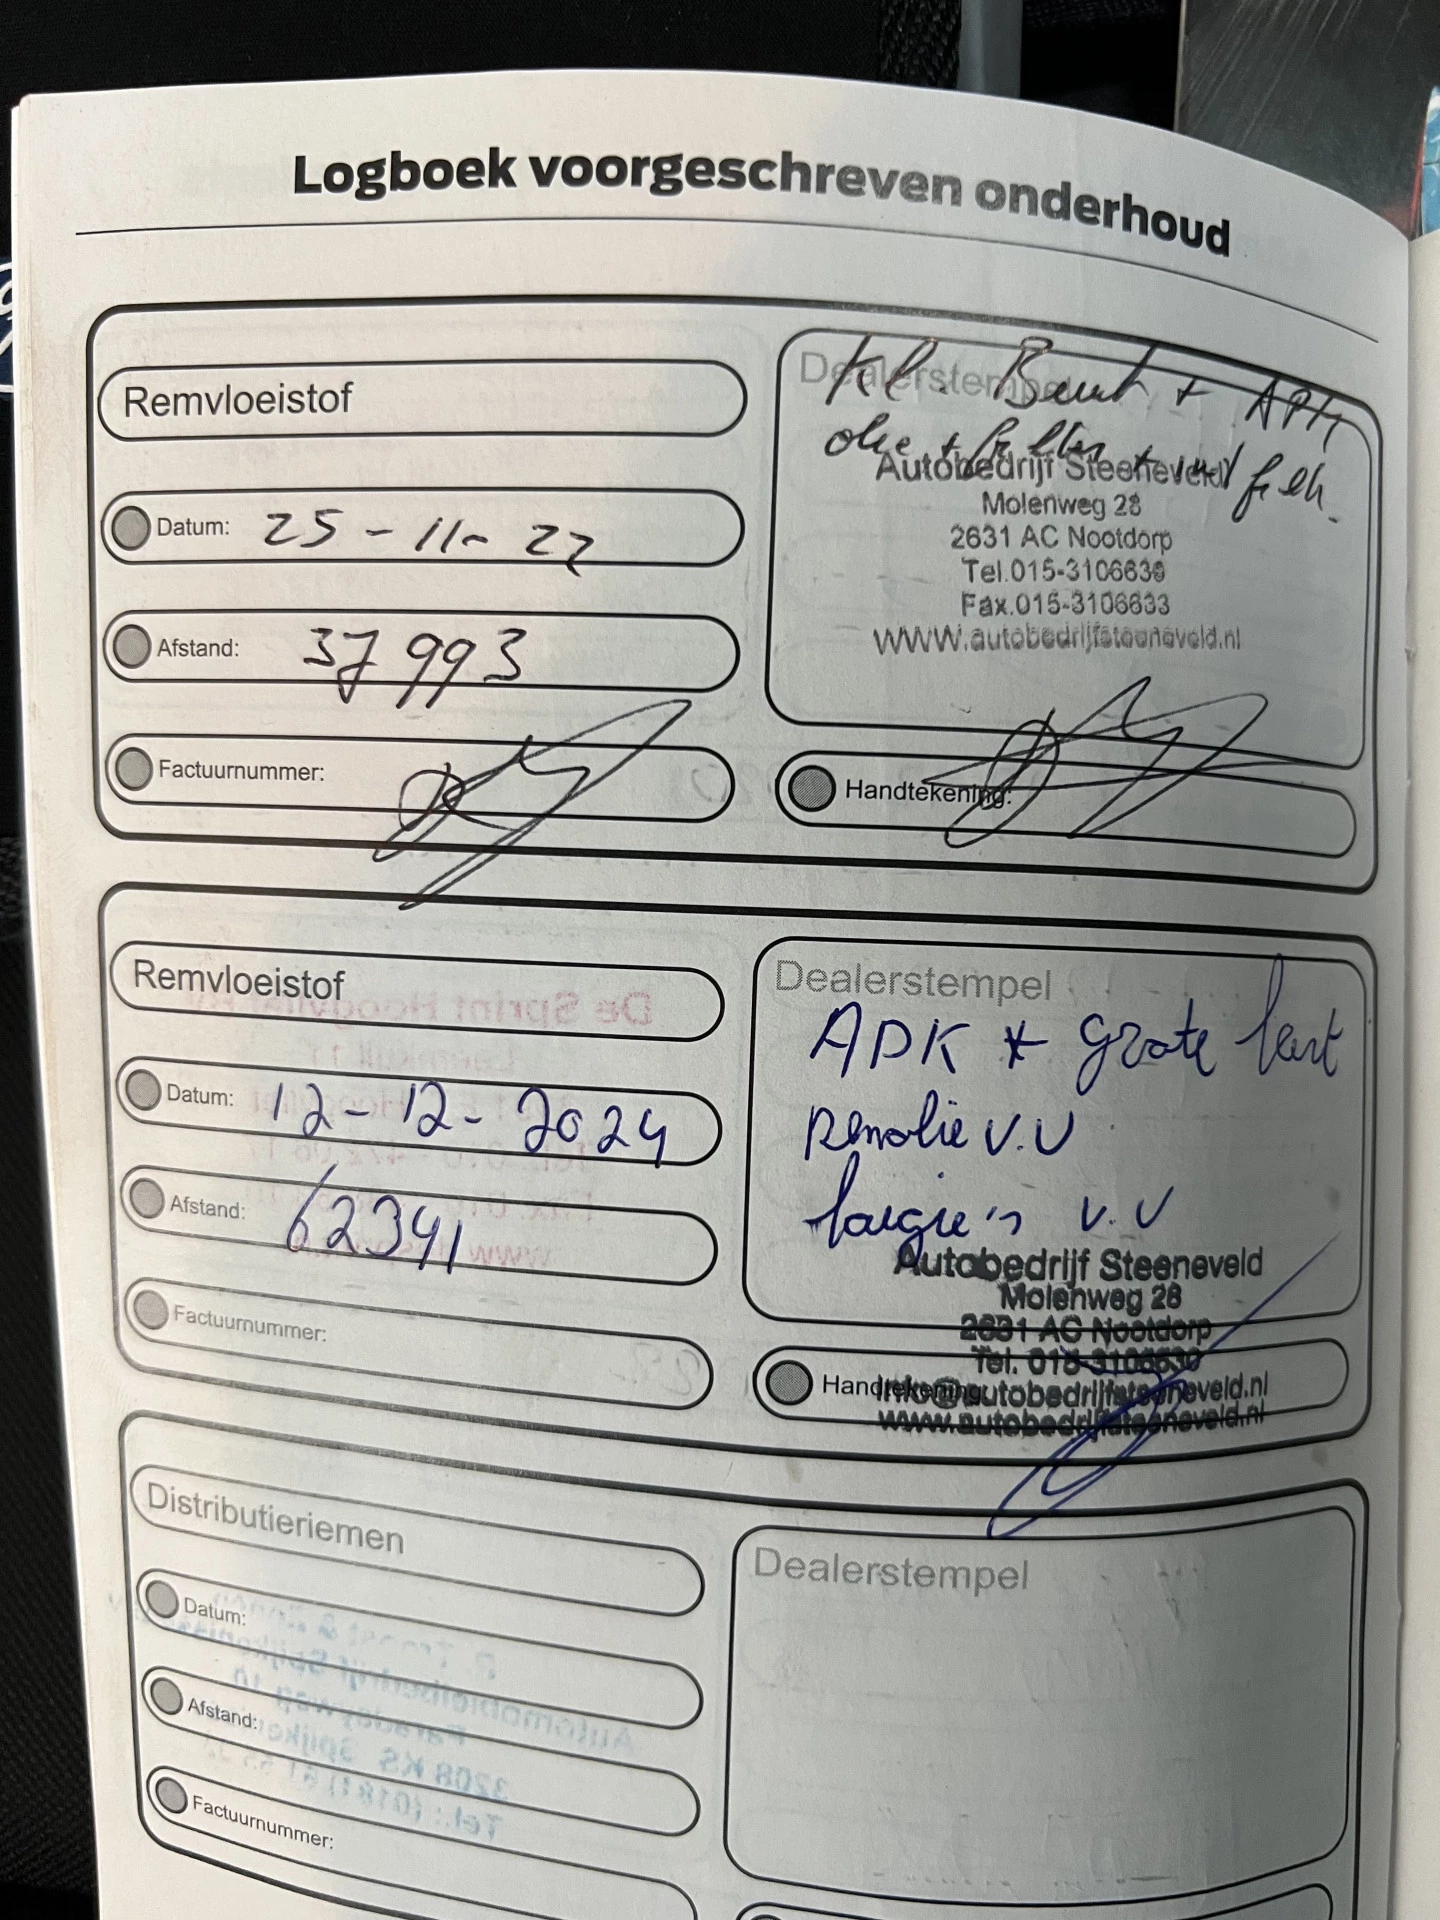 Logboek voorgeschreven onderhoud
Remvloeistof
Datum: 25-11-22
Afstand: 37993
Factuurnummer:
Dealerstempel
Kl. Beurt + APK
olie + filter +
Autobedrijf Steeneveld
Molenweg 28
2631 AC Nootdorp
Tel.015-3106639
Fax.015-3106633
WWW.autobedrijfsteeneveld.nl
Handtekening:
Remvloeistof
Datum: 12-12-2024
Afstand: 62341
Factuurnummer:
Dealerstempel
APK + grote beurt
Remolie V.V
bougie's V.V
Autobedrijf Steeneveld
Molenweg 28
2631 AC Nootdorp
Tel. 015-3106639
info@autobedrijfsteeneveld.nl
www.autobedrijfsteeneveld.nl
Handtekening:
Distributieriemen
Datum:
Afstand:
Factuurnummer:
Dealerstempel